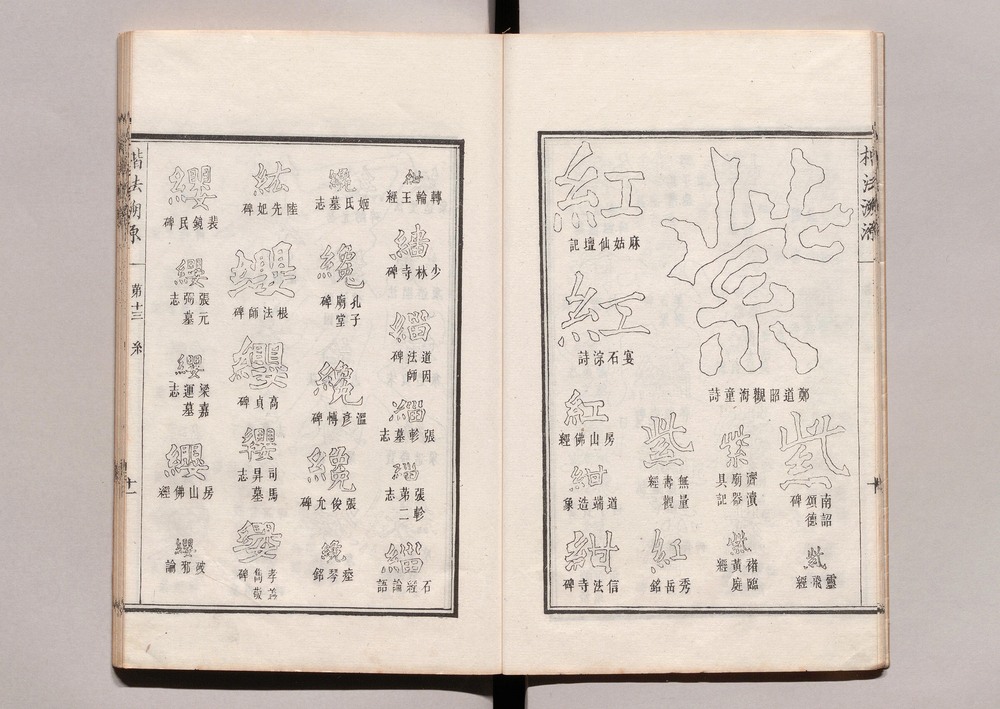 楷法溯源
紫
鄭道昭觀海童詩
紫
南詔德頌碑
紫
靈飛經
紫
濟瀆廟器具記
紫
褚臨黃庭經
紫
無量壽觀經
紅
秀岳銘
紅
麻姑仙壇記
紅
宴石淙詩
紅
房山佛經
紺
道端造象
紺
信法寺碑
紺
轉輪王經
少林寺碑
緇
道因法師碑
緇
張軫墓志
緇
張軫第二志
緇
石經論語
姬氏墓志
纔
孔子廟堂碑
纔
溫彥博碑
纔
張俊允碑
瘞琴銘
紘
陸先妃碑
纓
根法師碑
纓
高貞碑
纓
司馬昇墓志
纓
孝義雋敬碑
纓
裴鏡民碑
纓
張元弼墓志
纓
梁嘉運墓志
纓
房山佛經
纓
破邪論
楷法溯源 第十三 糸 十一